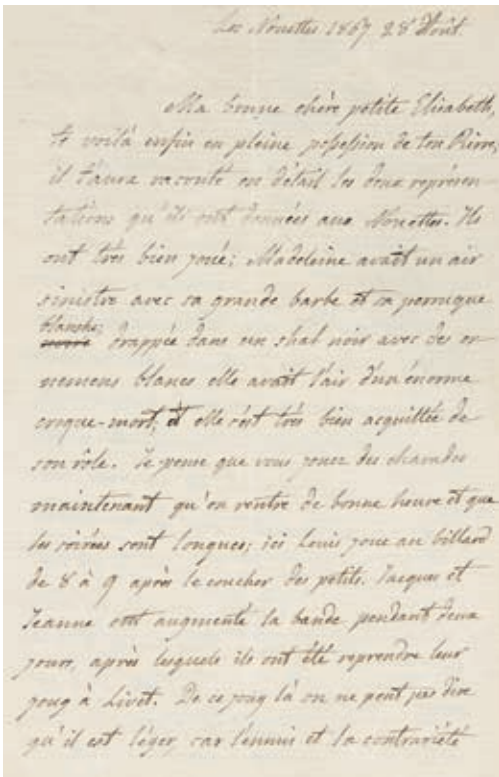 Les Nouettes 1867 28 Août.
Ma bonne chère petite Elisabeth,
te voilà enfin en pleine possession de ton Pierre,
il t'aura raconté en détail les deux représen-
tations qu'ils ont données aux Nouettes. Ils
ont très bien joué; Madeleine avait un air
sinistre avec sa grande barbe et sa perruque
blanche;
drappée dans un shal noir avec des or-
nemens blancs elle avait l'air d'un énorme
croque-mort; et elle s'est très bien acquittée de
son rôle. Je pense que vous jouez des charades
maintenant qu'on rentre de bonne heure et que
les soirées sont longues; ici Louis joue au billard
de 8 à 9 après le coucher des petits. Jacques et
Jeanne ont augmenté la bande pendant deux
jours, après lesquels ils ont été reprendre leur
joug à Livet. De ce joug là on ne peut pas dire
qu'il est léger, car l'ennui et la contrariété